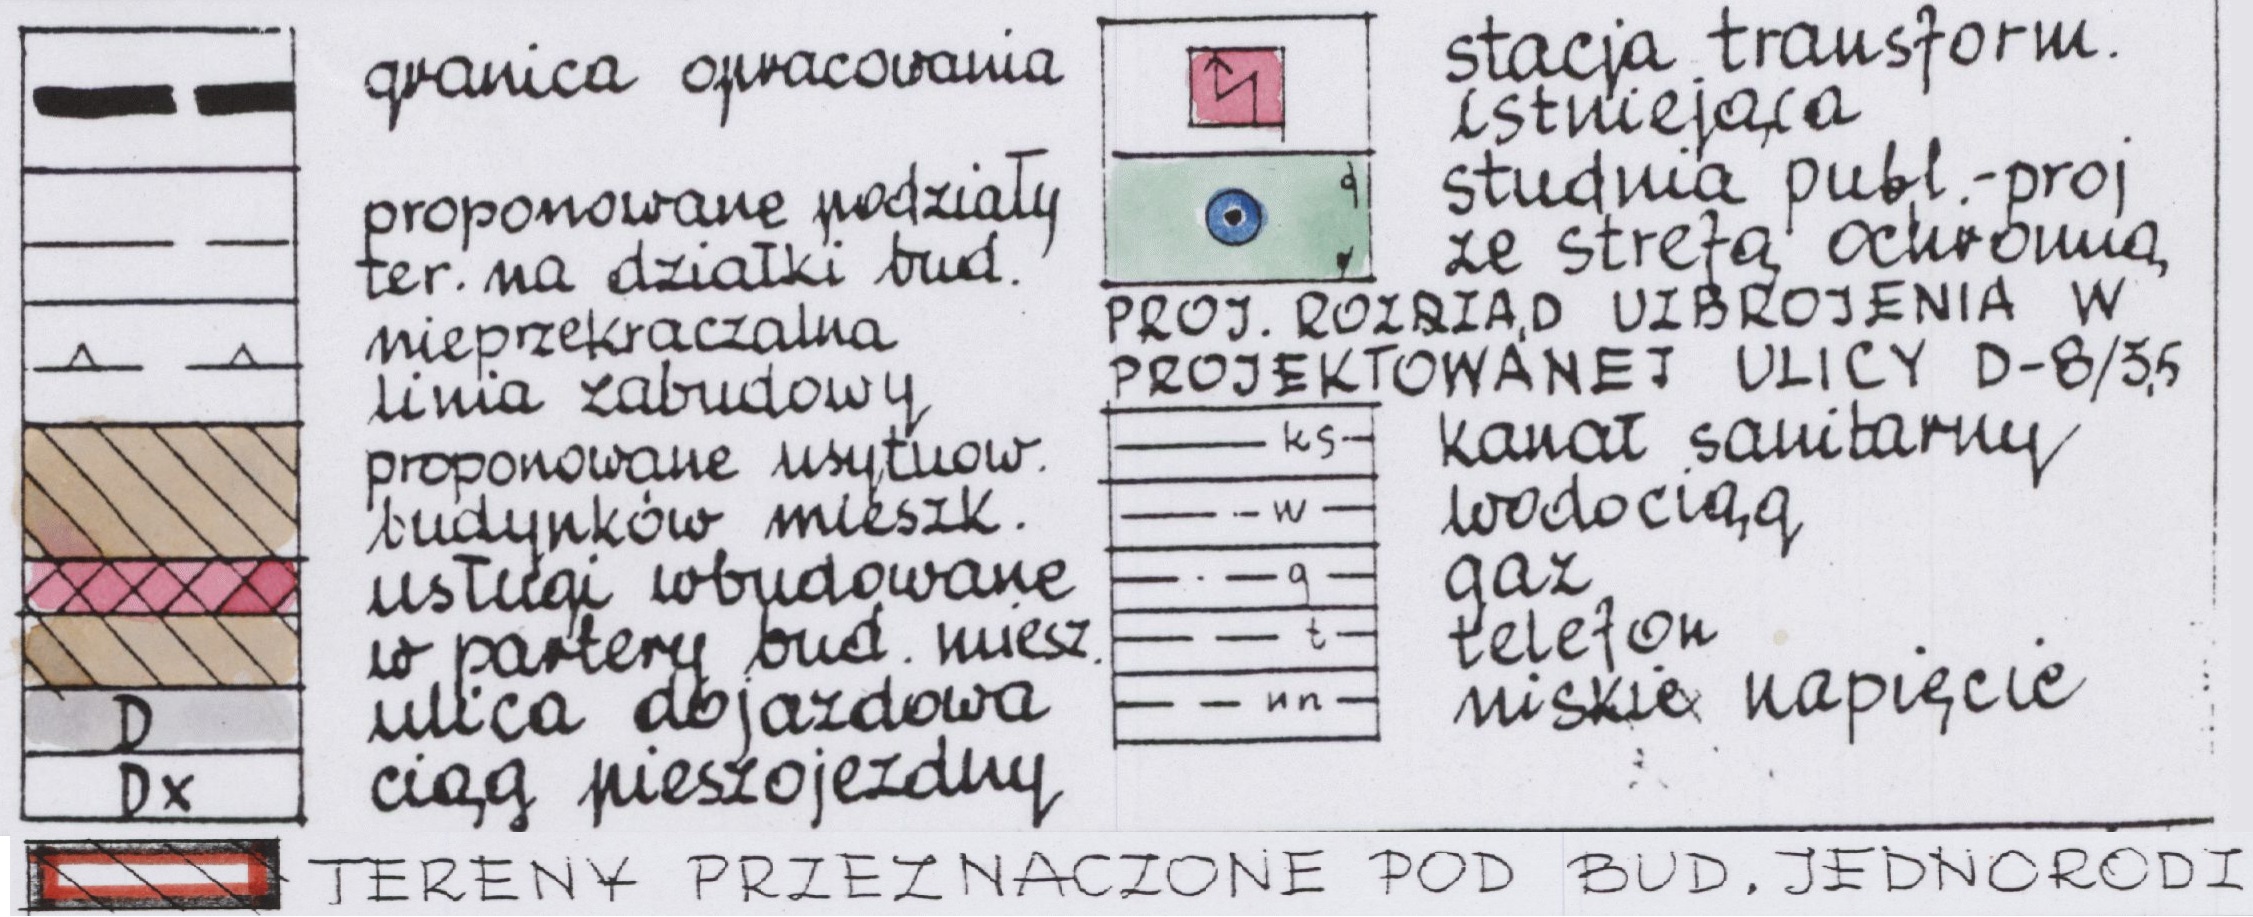 granica opracowania
proponowane podziały
ter. na działki bud.
nieprzekraczalna
linia zabudowy
proponowane usytuow.
budynków mieszk.
usługi wbudowane
w partery bud. miesz.
D
ulica dojazdowa
Dx
ciąg pieszojezdny
stacja transform.
istniejąca
studnia publ.-proj
ze strefą ochronną
PROJ. ROZRZĄD UZBROJENIA W
PROJEKTOWANEJ ULICY D-8/3,5
ks
kanał sanitarny
w
wodociąg
g
gaz
t
telefon
nn
niskie napięcie
TERENY PRZEZNACZONE POD BUD. JEDNORODZ